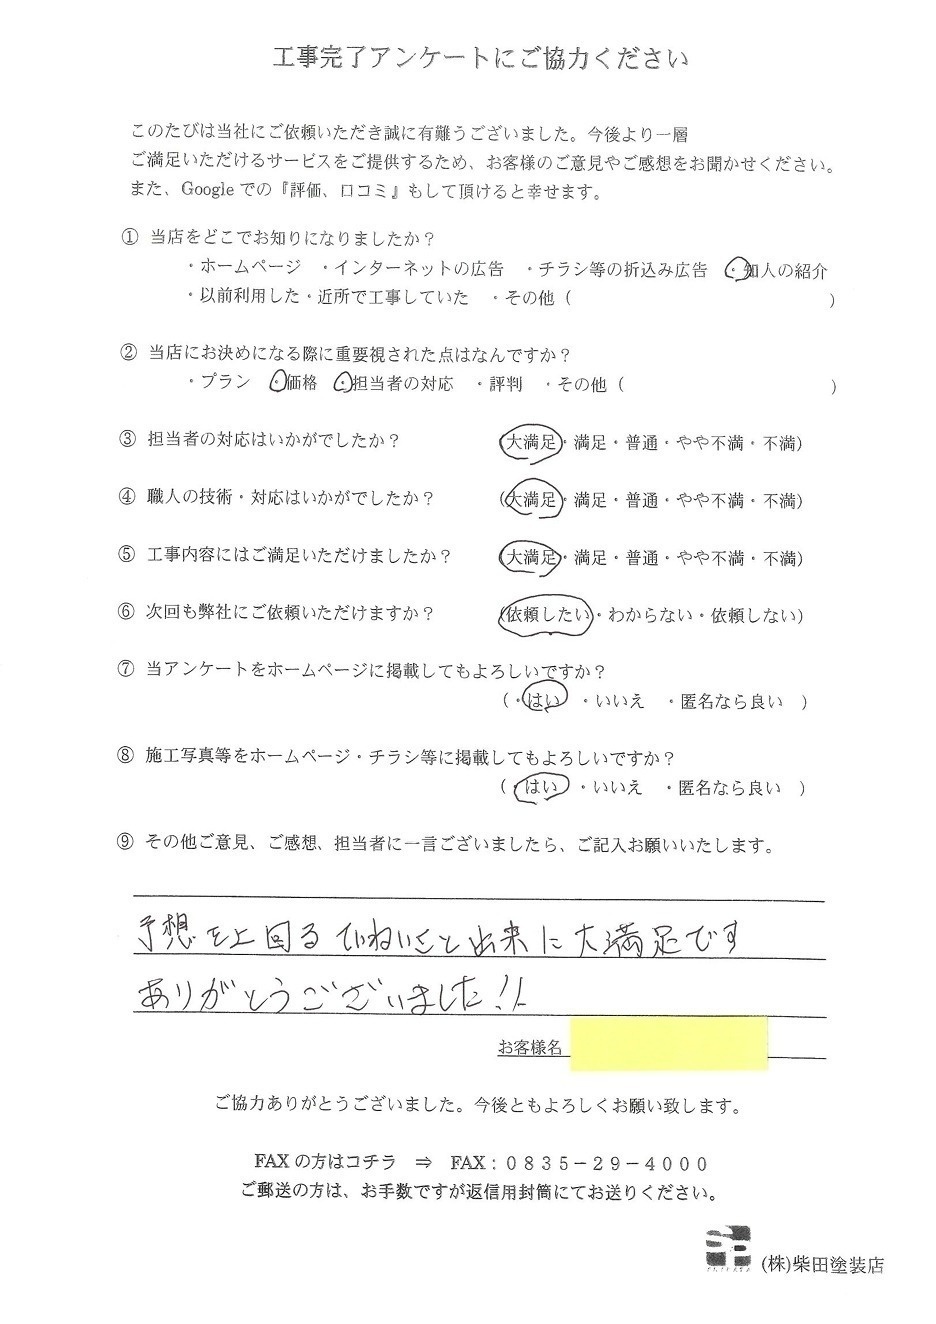 工事完了アンケートにご協力ください
このたびは当社にご依頼いただき誠に有難うございました。今後より一層
ご満足いただけるサービスをご提供するため、お客様のご意見やご感想をお聞かせください。
また、Googleでの『評価、口コミ』もして頂けると幸せます。
① 当店をどこでお知りになりましたか？
・ホームページ ・インターネットの広告 ・チラシ等の折込み広告 ・知人の紹介
・以前利用した・近所で工事していた ・その他（ ）
② 当店にお決めになる際に重要視された点はなんですか？
・プラン ・価格 ・担当者の対応 ・評判 ・その他（ ）
③ 担当者の対応はいかがでしたか？ （大満足・満足・普通・やや不満・不満）
④ 職人の技術・対応はいかがでしたか？ （大満足・満足・普通・やや不満・不満）
⑤ 工事内容にはご満足いただけましたか？ （大満足・満足・普通・やや不満・不満）
⑥ 次回も弊社にご依頼いただけますか？ （依頼したい・わからない・依頼しない）
⑦ 当アンケートをホームページに掲載してもよろしいですか？
（・はい ・いいえ ・匿名なら良い ）
⑧ 施工写真等をホームページ・チラシ等に掲載してもよろしいですか？
（・はい ・いいえ ・匿名なら良い ）
⑨ その他ご意見、ご感想、担当者に一言ございましたら、ご記入お願いいたします。
予想を上回るていねいさと出来に大満足です
ありがとうございました!!
お客様名
ご協力ありがとうございました。今後ともよろしくお願い致します。
FAXの方はコチラ ⇒ FAX：０８３５－２９－４０００
ご郵送の方は、お手数ですが返信用封筒にてお送りください。
(株)柴田塗装店